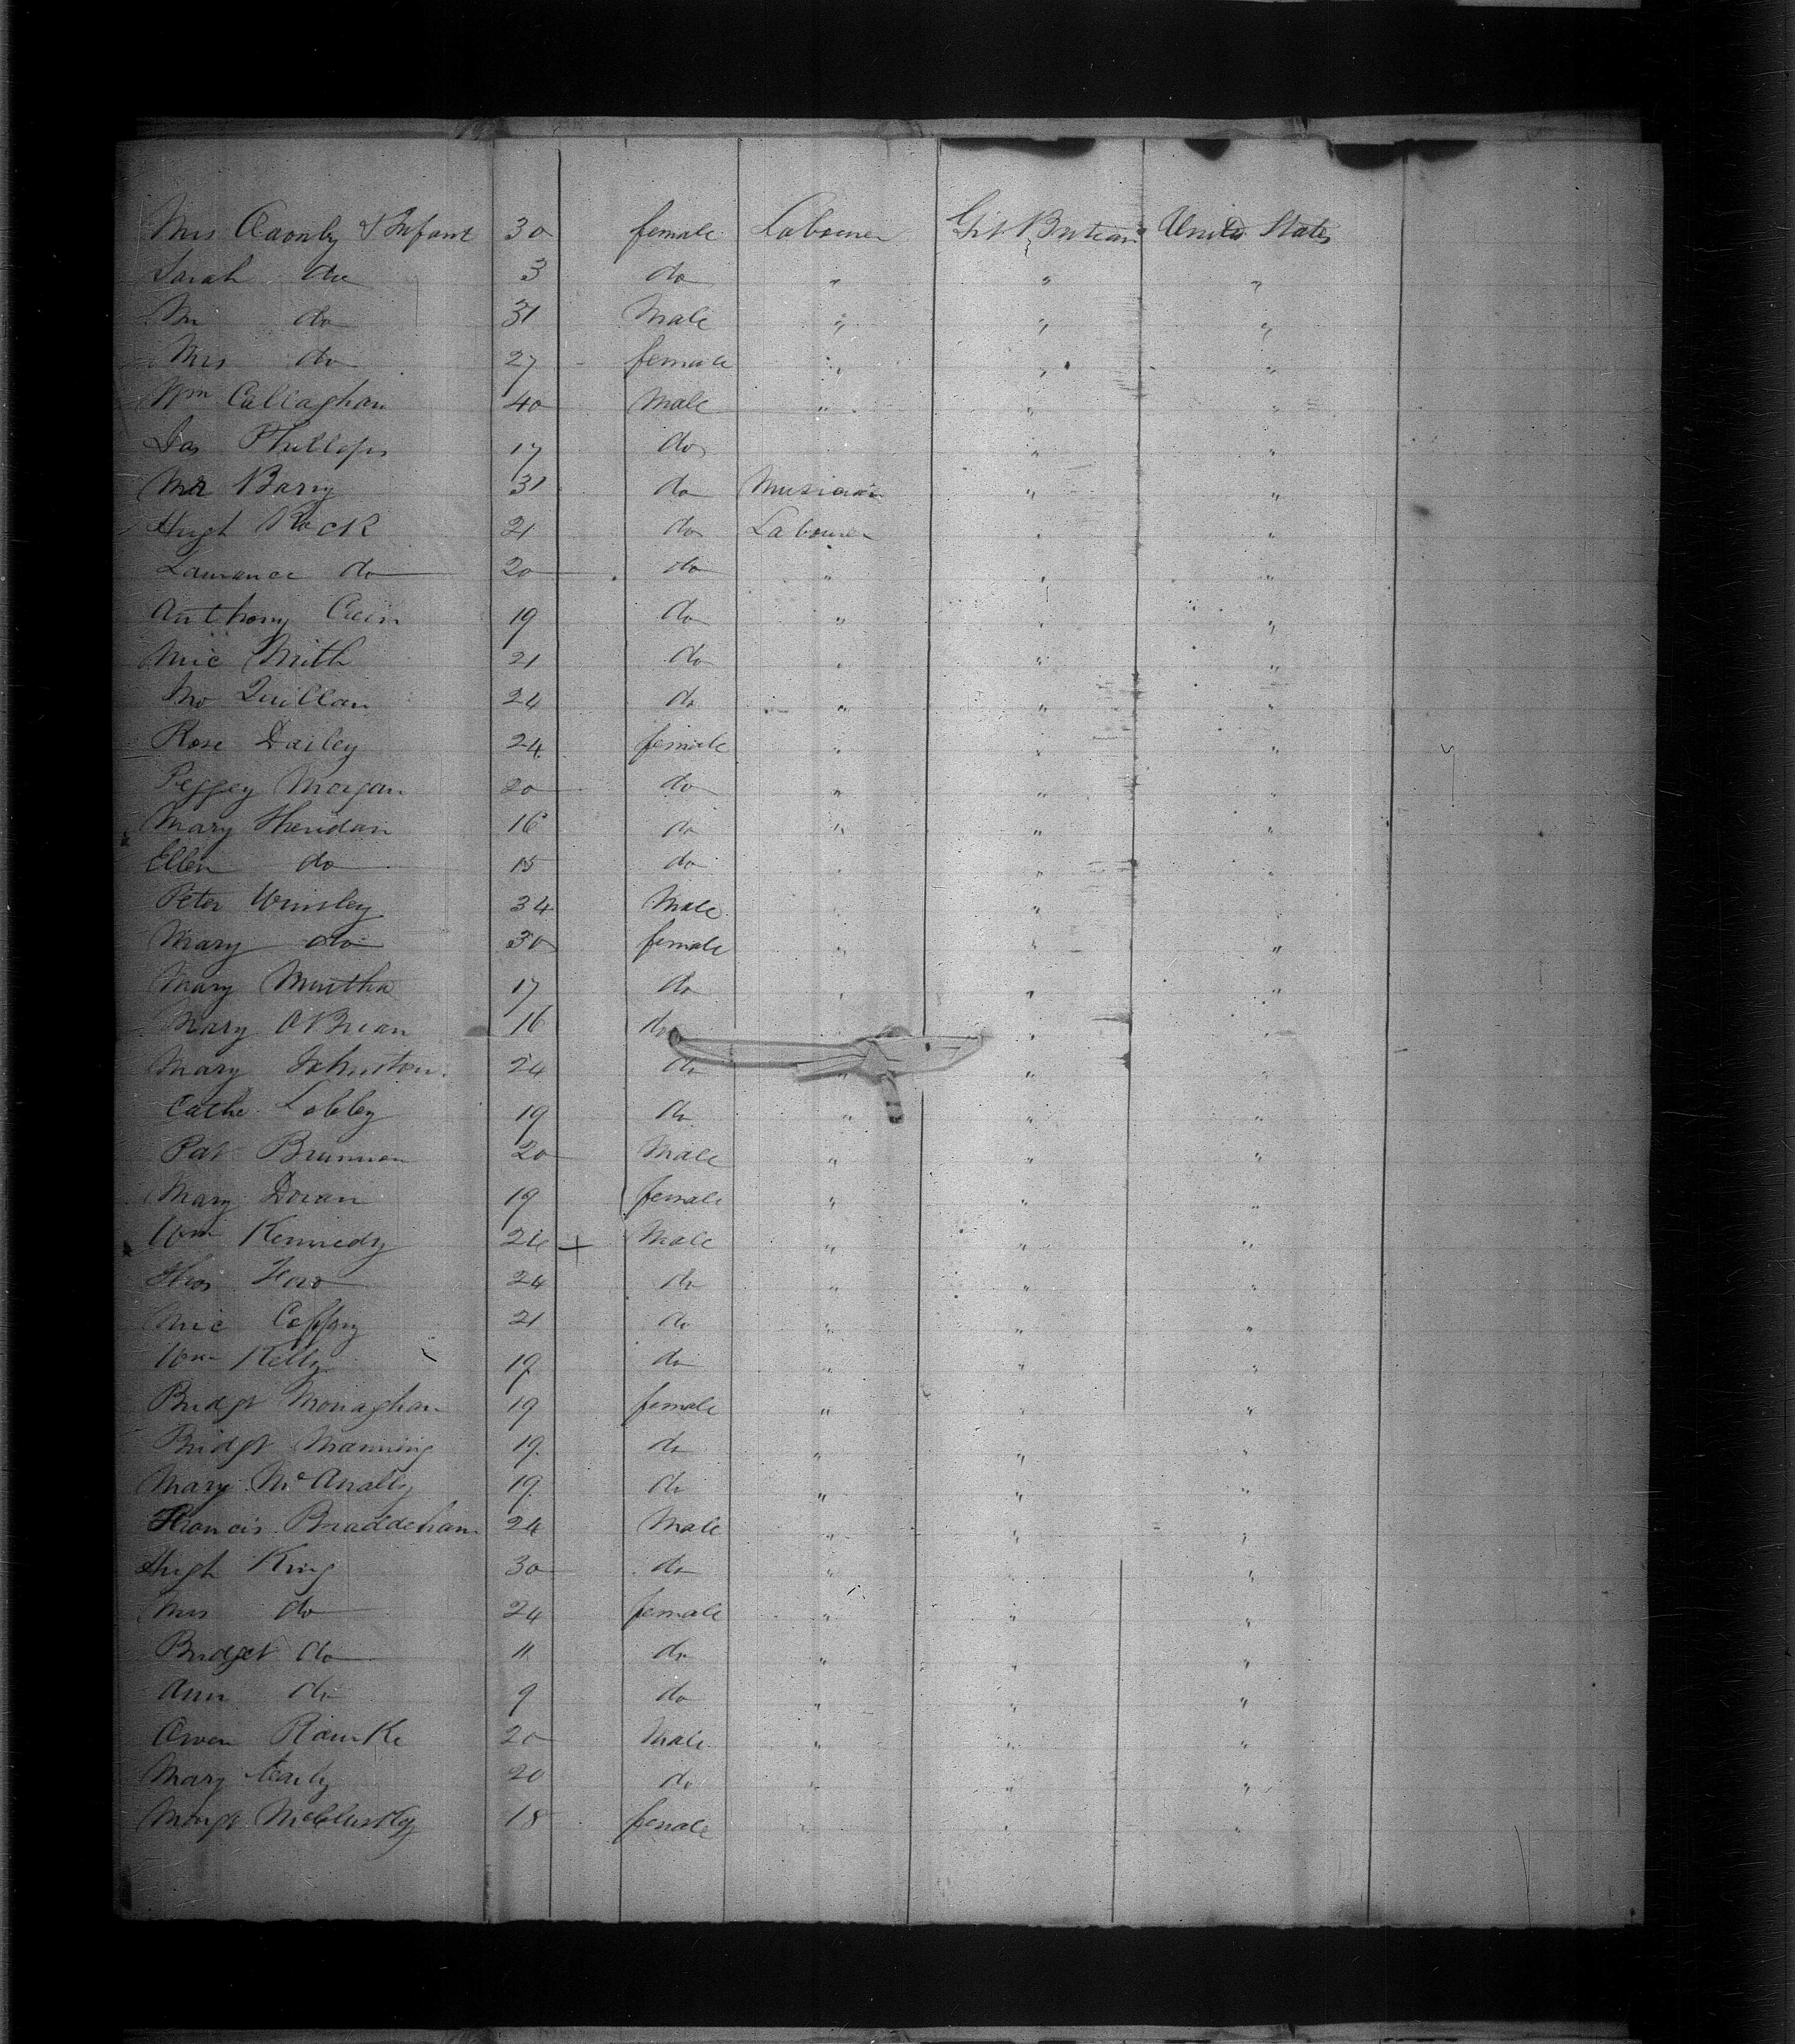 Mrs & Infant 30 female Labourer Grt Britain United States
Sarah do 3 do " " "
Mr do 31 Male " " "
Mrs do 27 female " " "
Wm Callaghan 40 Male " " "
Jas Phillips 17 do " "
Mr Barry 31 do Musician " "
Hugh Rock 21 do Labourer " "
Lawrance do 20 do " " "
Anthony 19 do " " "
Mic 21 do " " "
Jno Quillan 24 do " " "
Rose Dailey 24 female " " "
Peggey Morgan 20 do " " "
Mary Sheridan 16 do " " "
Ellen do 15 do " " "
Peter 34 Male " "
Mary do 30 female " " "
Mary Murtha 17 do " " "
Mary OBrian 16 do " "
Mary Johnston 24 do " " "
Cathe 19 do " " "
Pat Brunnen 20 Male " " "
Mary Doran 19 female " " "
Wm Kennedy + Male " " "
Thos 24 do " " "
Mic Caffrey 21 do " " "
Wm Kelly 19 do " " "
Bridgt Monaghan 19 female " " "
Bridgt Manning 19 do " " "
Mary McAnally 19 do " " "
Francis 24 Male " " "
Hugh King 30 do " " "
Mrs do 24 female " " "
Bridget do 11 do " " "
Ann do 9 do " " "
Owen Rourke 20 Male " " "
Mary Early 20 do " " "
Margt McClusky 18 female " " "